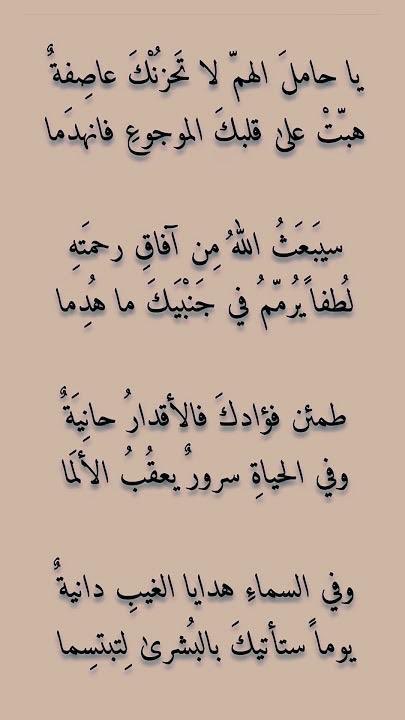 يا حاملَ الهمّ لا تَحزُنْكَ عاصِفةٌ
هبّتْ على قلبكَ الموجوعِ فانهدَما
سيَبعَثُ اللهُ مِن آفاقِ رحمَتهِ
لُطفاً يُرمّمُ في جَنْبَيكَ ما هُدِما
طمئن فؤادكَ فالأقدارُ حانِيَةٌ
وفي الحياةِ سرورٌ يعقُبُ الألَمَا
وفي السماءِ هدايا الغيبِ دانيةٌ
يوماً ستأتيكَ بالبُشرى لِتبتسِما